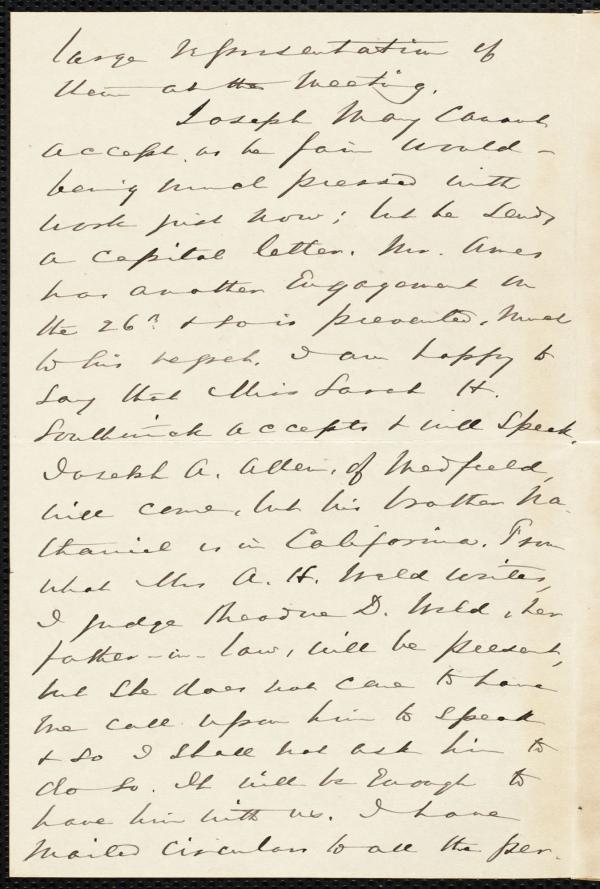 large representation of
them at the meeting.
Joseph May cannot
accept, as he fain would -
being much pressed with
work just now; but he sends
a capital letter. Mr. Ames
has another engagement on
the 26th & so is prevented, much
to his regret. I am happy to
say that Miss Sarah H.
Southwick accepts & will speak.
Joseph A. Allen, of Medfield,
will come, but his brother Na-
thaniel is in California. From
what Mrs A. H. Weld writes,
I judge Theodore D. Weld, her
father-in-law, will be present,
but she does not care to have
me call upon him to speak
& so I shall not ask him to
do so. It will be enough to
have him with us. I have
mailed circulars to all the per-